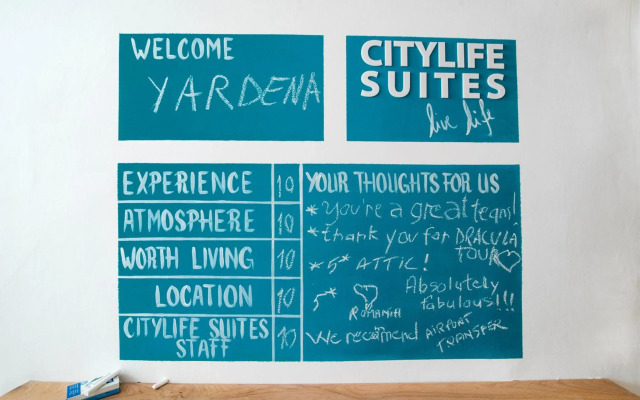 WELCOME
YARDENA
CITYLIFE
SUITES
live life
EXPERIENCE 10
ATMOSPHERE 10
WORTH LIVING 10
LOCATION 10
CITYLIFE SUITES
STAFF 10
YOUR THOUGHTS FOR US
* You're a great team!
* thank you for DRACULA
TOUR
* 5* ATTIC!
Absolutely
fabulous!!!
5* ROMANIA
We recomend AIRPORT
TRANSFER